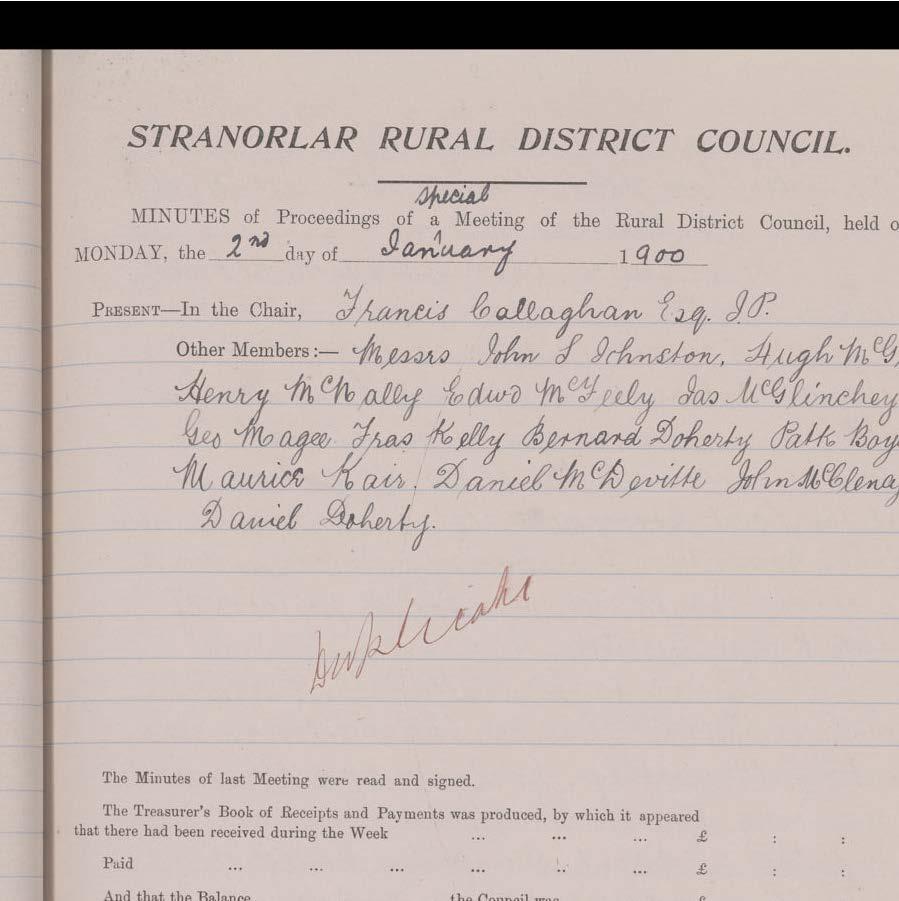 STRANORLAR RURAL DISTRICT COUNCIL.
special
MINUTES of Proceedings of a Meeting of the Rural District Council, held o
MONDAY, the 2nd day of January 1900
PRESENT—In the Chair, Francis Callaghan Esq. J.P.
Other Members:— Messrs John S Johnston, Hugh McG
Henry McNally Edwd McFeely Jas McGlinchey
Geo Magee Fras Kelly Bernard Doherty Patk Boy
Maurice Kair. Daniel McDevitte John McClena
Daniel Doherty.
Duplicate
The Minutes of last Meeting were read and signed.
The Treasurer's Book of Receipts and Payments was produced, by which it appeared
that there had been received during the Week ... ... ... £ : :
Paid ... ... ... ... ... ... £ : :
And that the Balance the Council was £